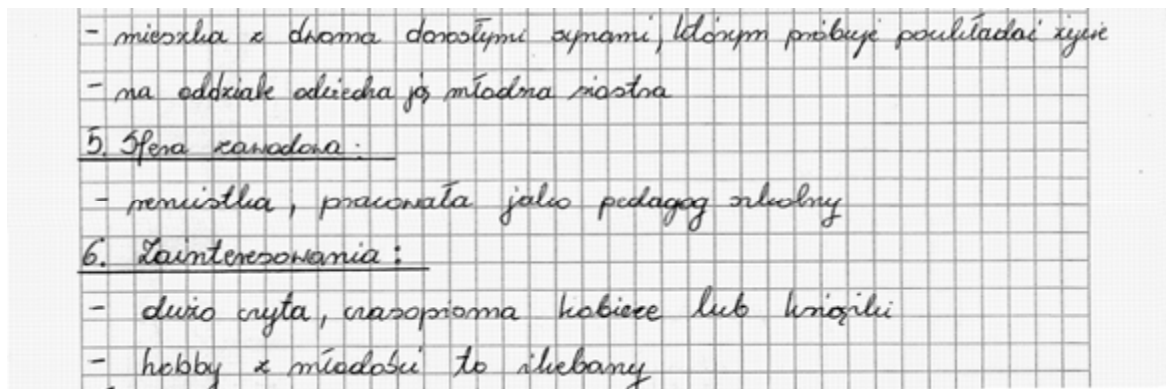 - mieszka z dwoma dorosłymi synami, którym próbuje poukładać życie
- na oddziale odwiedza ją młodsza siostra
5. Sfera zawodowa:
- rencistka, pracowała jako pedagog szkolny
6. Zainteresowania:
- dużo czyta, czasopisma kobiece lub książki
- hobby z młodości to ikebany